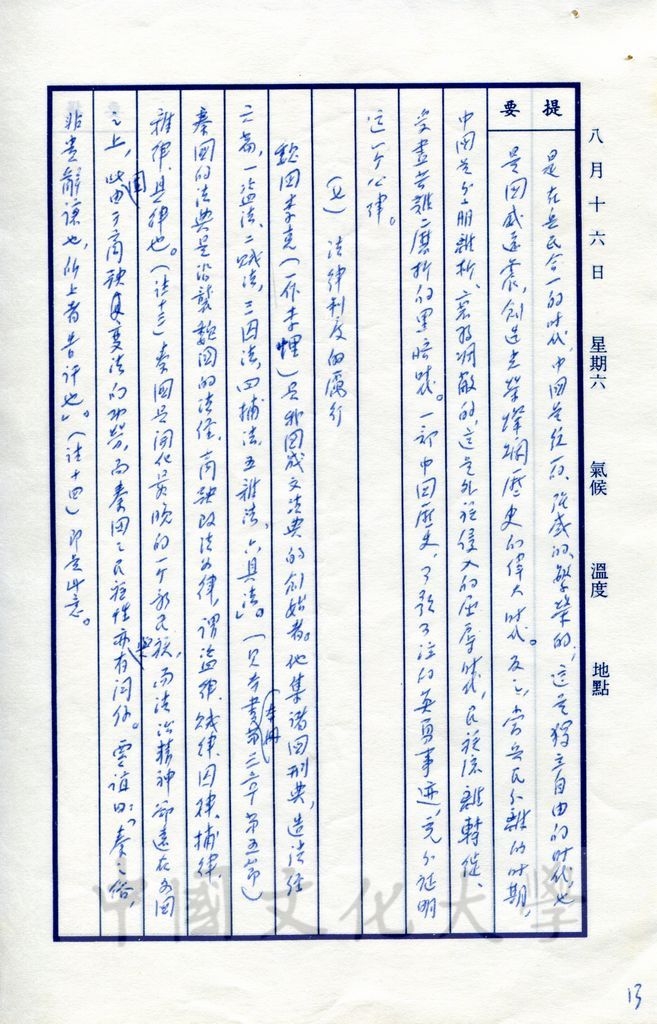 八月十六日 星期六 氣候 溫度 地點
提要
是在兵民合一的时代,中國是统一的、強盛的、繁榮的;這是獨立自由的时代也
是国威遠震,創造光榮燦爛歷史的偉大时代。反之,當兵民分離的时期,
中国是分崩離析、衰弱凋敝的,這是外族侵入的屈辱时代,民族流離轉徙、
受盡苦難磨折的黑暗时代。一部中国歷史,可歌可泣的英勇事迹,充分証明
這一个公律。
(七) 法律制度的厲行
魏国李克(一作李悝)是我国成文法典的創始者。他集諸国刑典,造法经
六篇,一盜法、二賊法,三囚法,四捕法,五雜法,六具法」。(見本書本冊第三章第五節)
秦国的法典是沿襲魏国的法经,商鞅改法为律,谓盜律、賊律、囚律、捕律
雜律、具律也。(註十三)秦国是開化最晚的一个新民族,而法治精神卻遠在各国
之上,此固由于商鞅变法的功勞,而秦国之民族性亦與有関係。賈谊曰:「秦之俗,
非贵辭讓也,所上者告訐也」。(註十四)即是此意。
中國文化大學
13